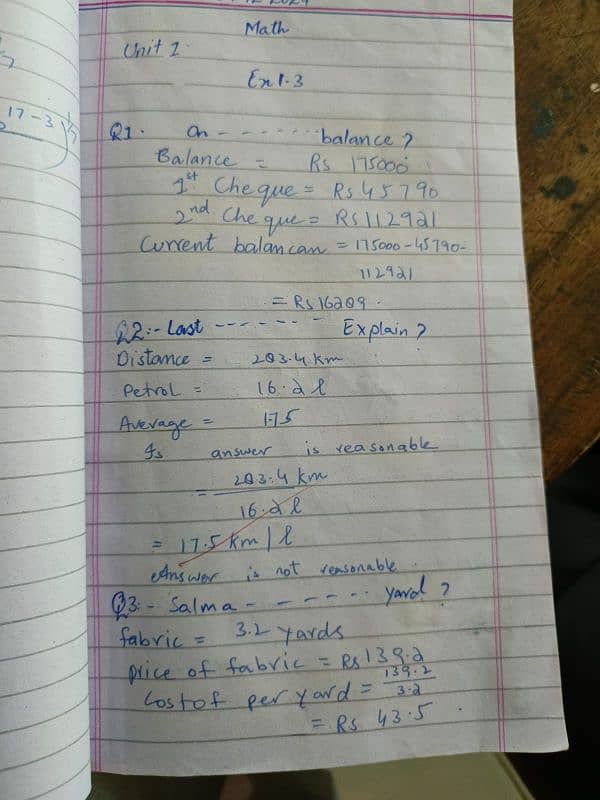 Math
Unit 1
Ex 1.3
17-3
Q1. On - - - - - - - - balance?
Balance = Rs 175000
1st Cheque = Rs 45790
2nd Cheque = Rs 112921
Current balancan = 175000-45790-
112921
= Rs 16209.
Q2:- Last - - - - - - - Explain?
Distance = 283.4 km
Petrol = 16.2 l
Average = 175
Is answer is reasonable
= 283.4 km
16.2 l
= 17.5 km / l
Answer is not reasonable
Q3:- Salma - - - - - - - yard?
fabric = 3.2 yards
price of fabric = Rs 139.2
Cost of per yard = 139.2
3.2
= Rs 43.5.